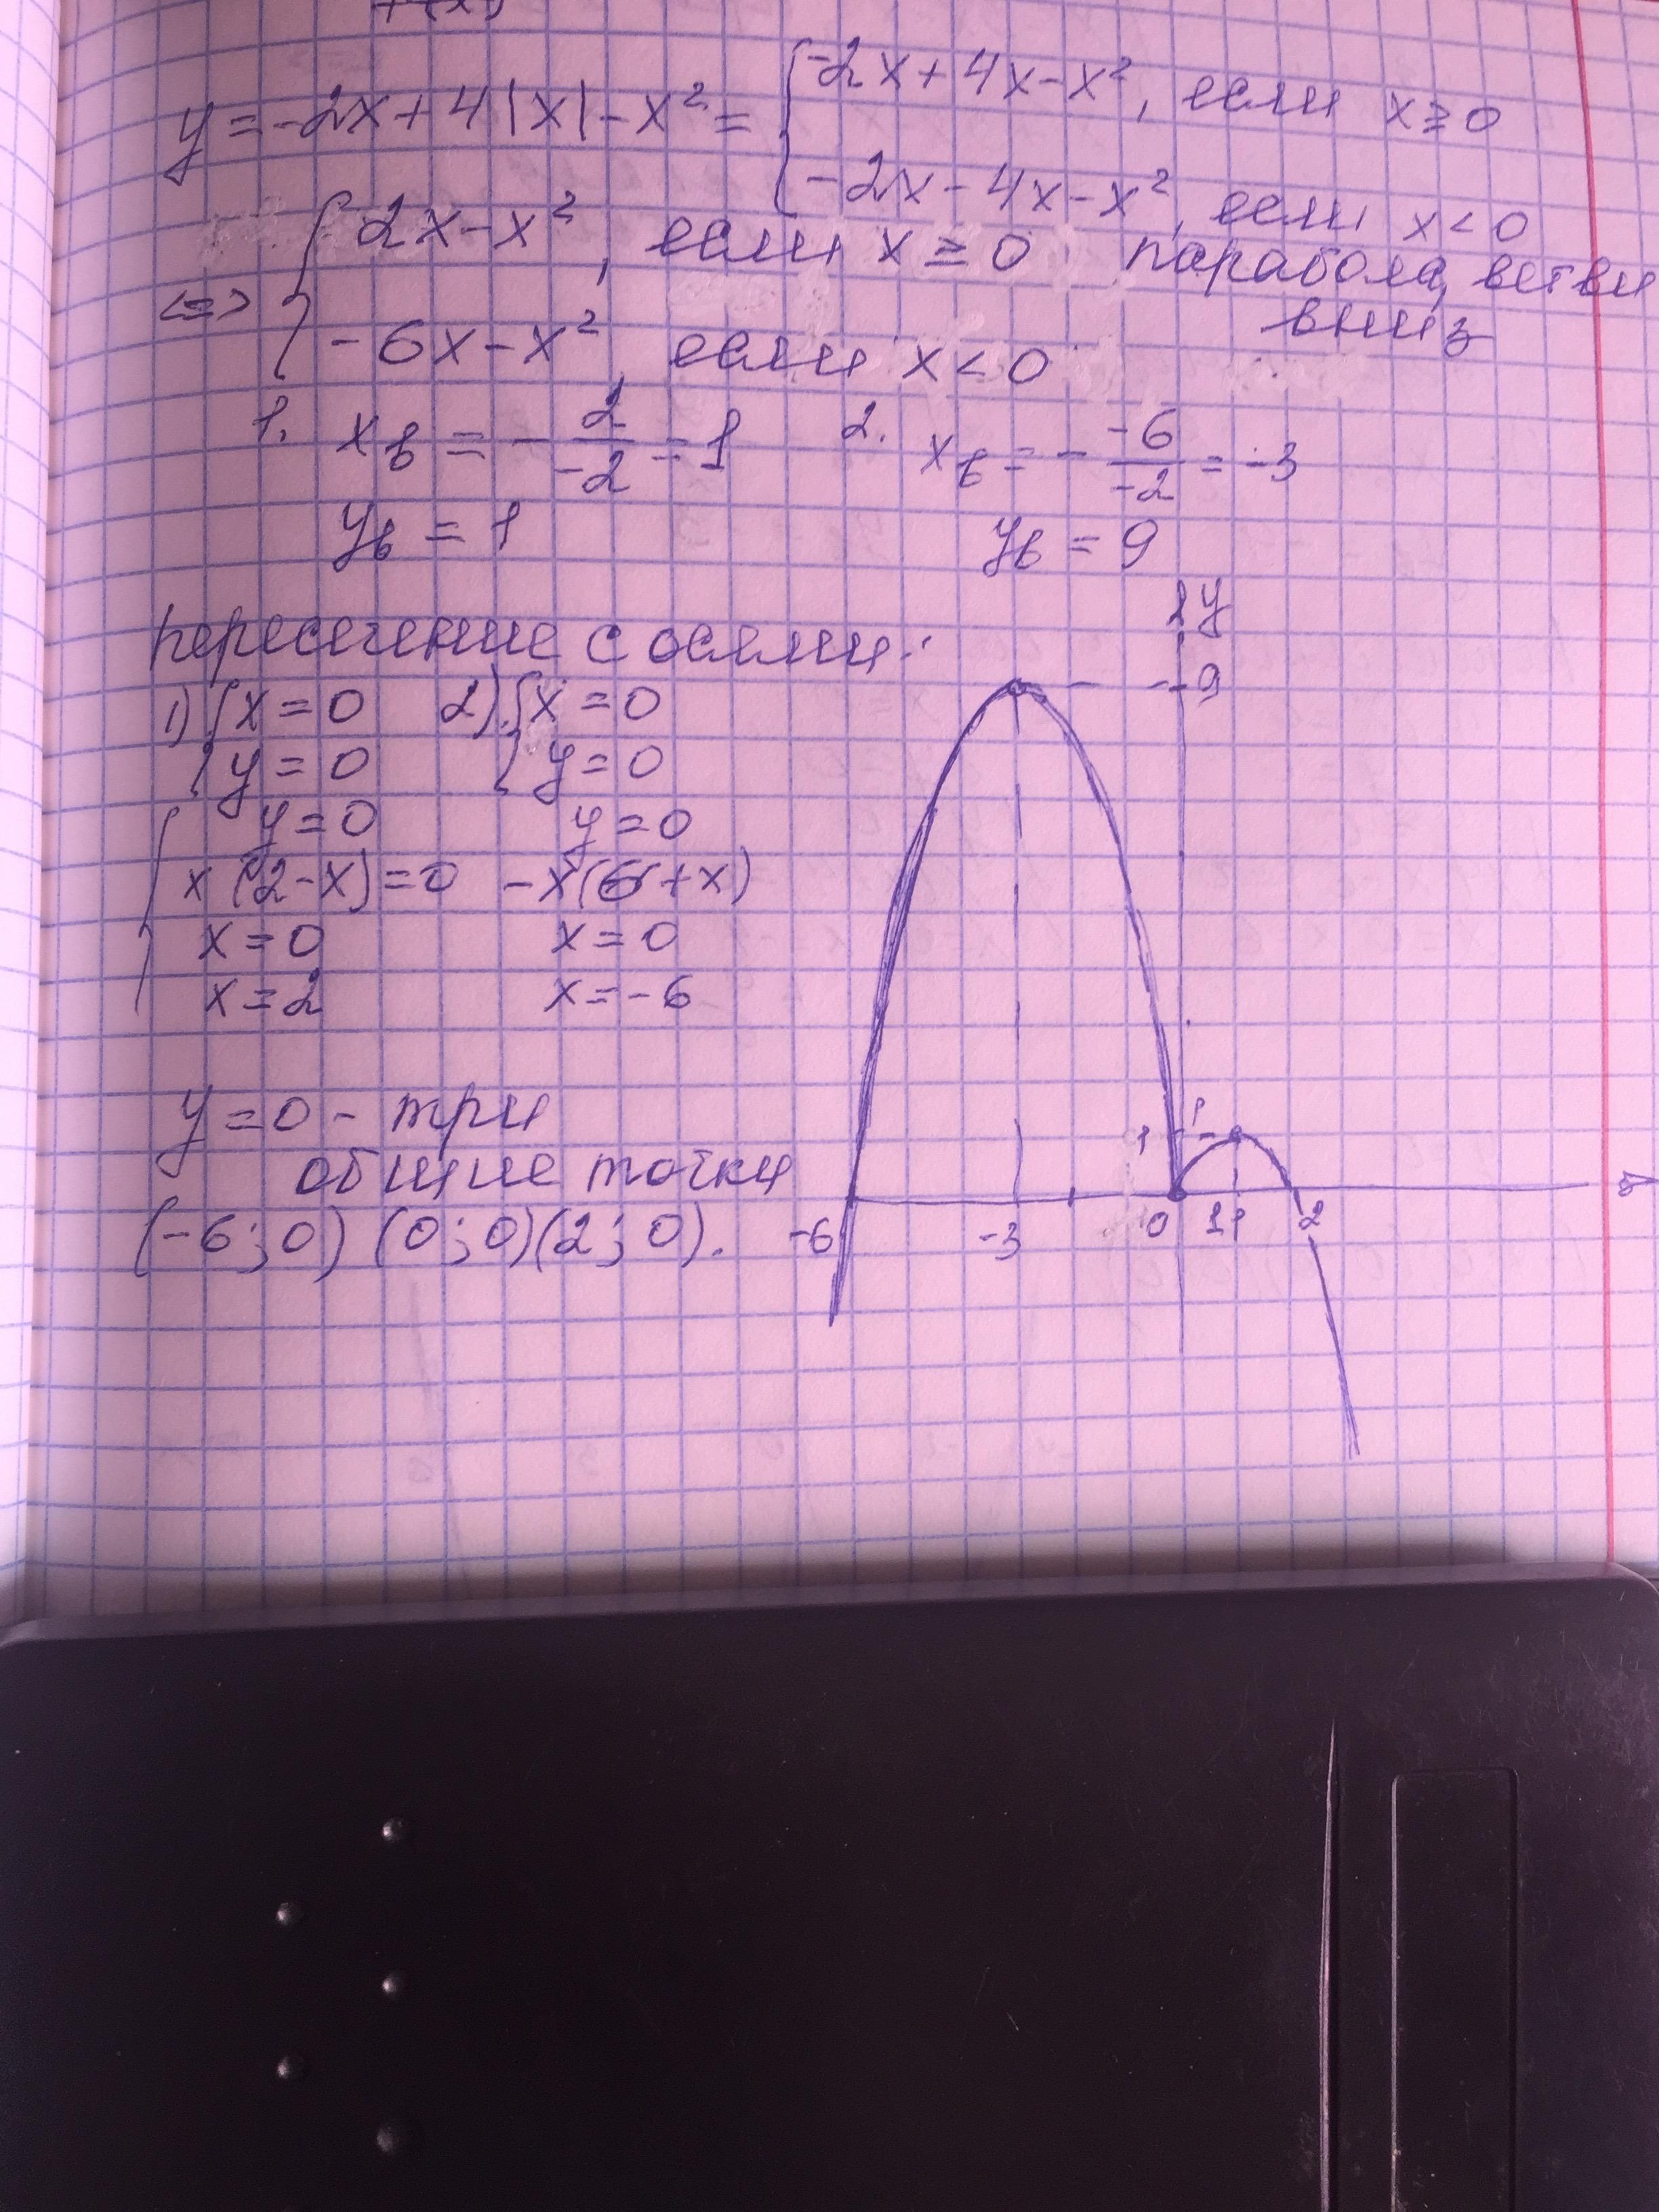 y = -2x + 4|x| - x² = { -2x + 4x - x², если x ≥ 0
-2x - 4x - x², если x < 0
<=> { 2x - x², если x ≥ 0 парабола, ветви вниз
-6x - x², если x < 0
1. xв = - 2/-2 = 1 2. xв = - -6/-2 = -3
yв = 1 yв = 9
пересечение с осями:
1) { x = 0 2) { x = 0
y = 0 y = 0
{ y = 0 y = 0
x (2 - x) = 0 -x(6 + x)
x = 0 x = 0
x = 2 x = -6
y = 0 - три
общие точки
(-6; 0) (0; 0) (2; 0).
y
9
1
-6 -3 0 1 2